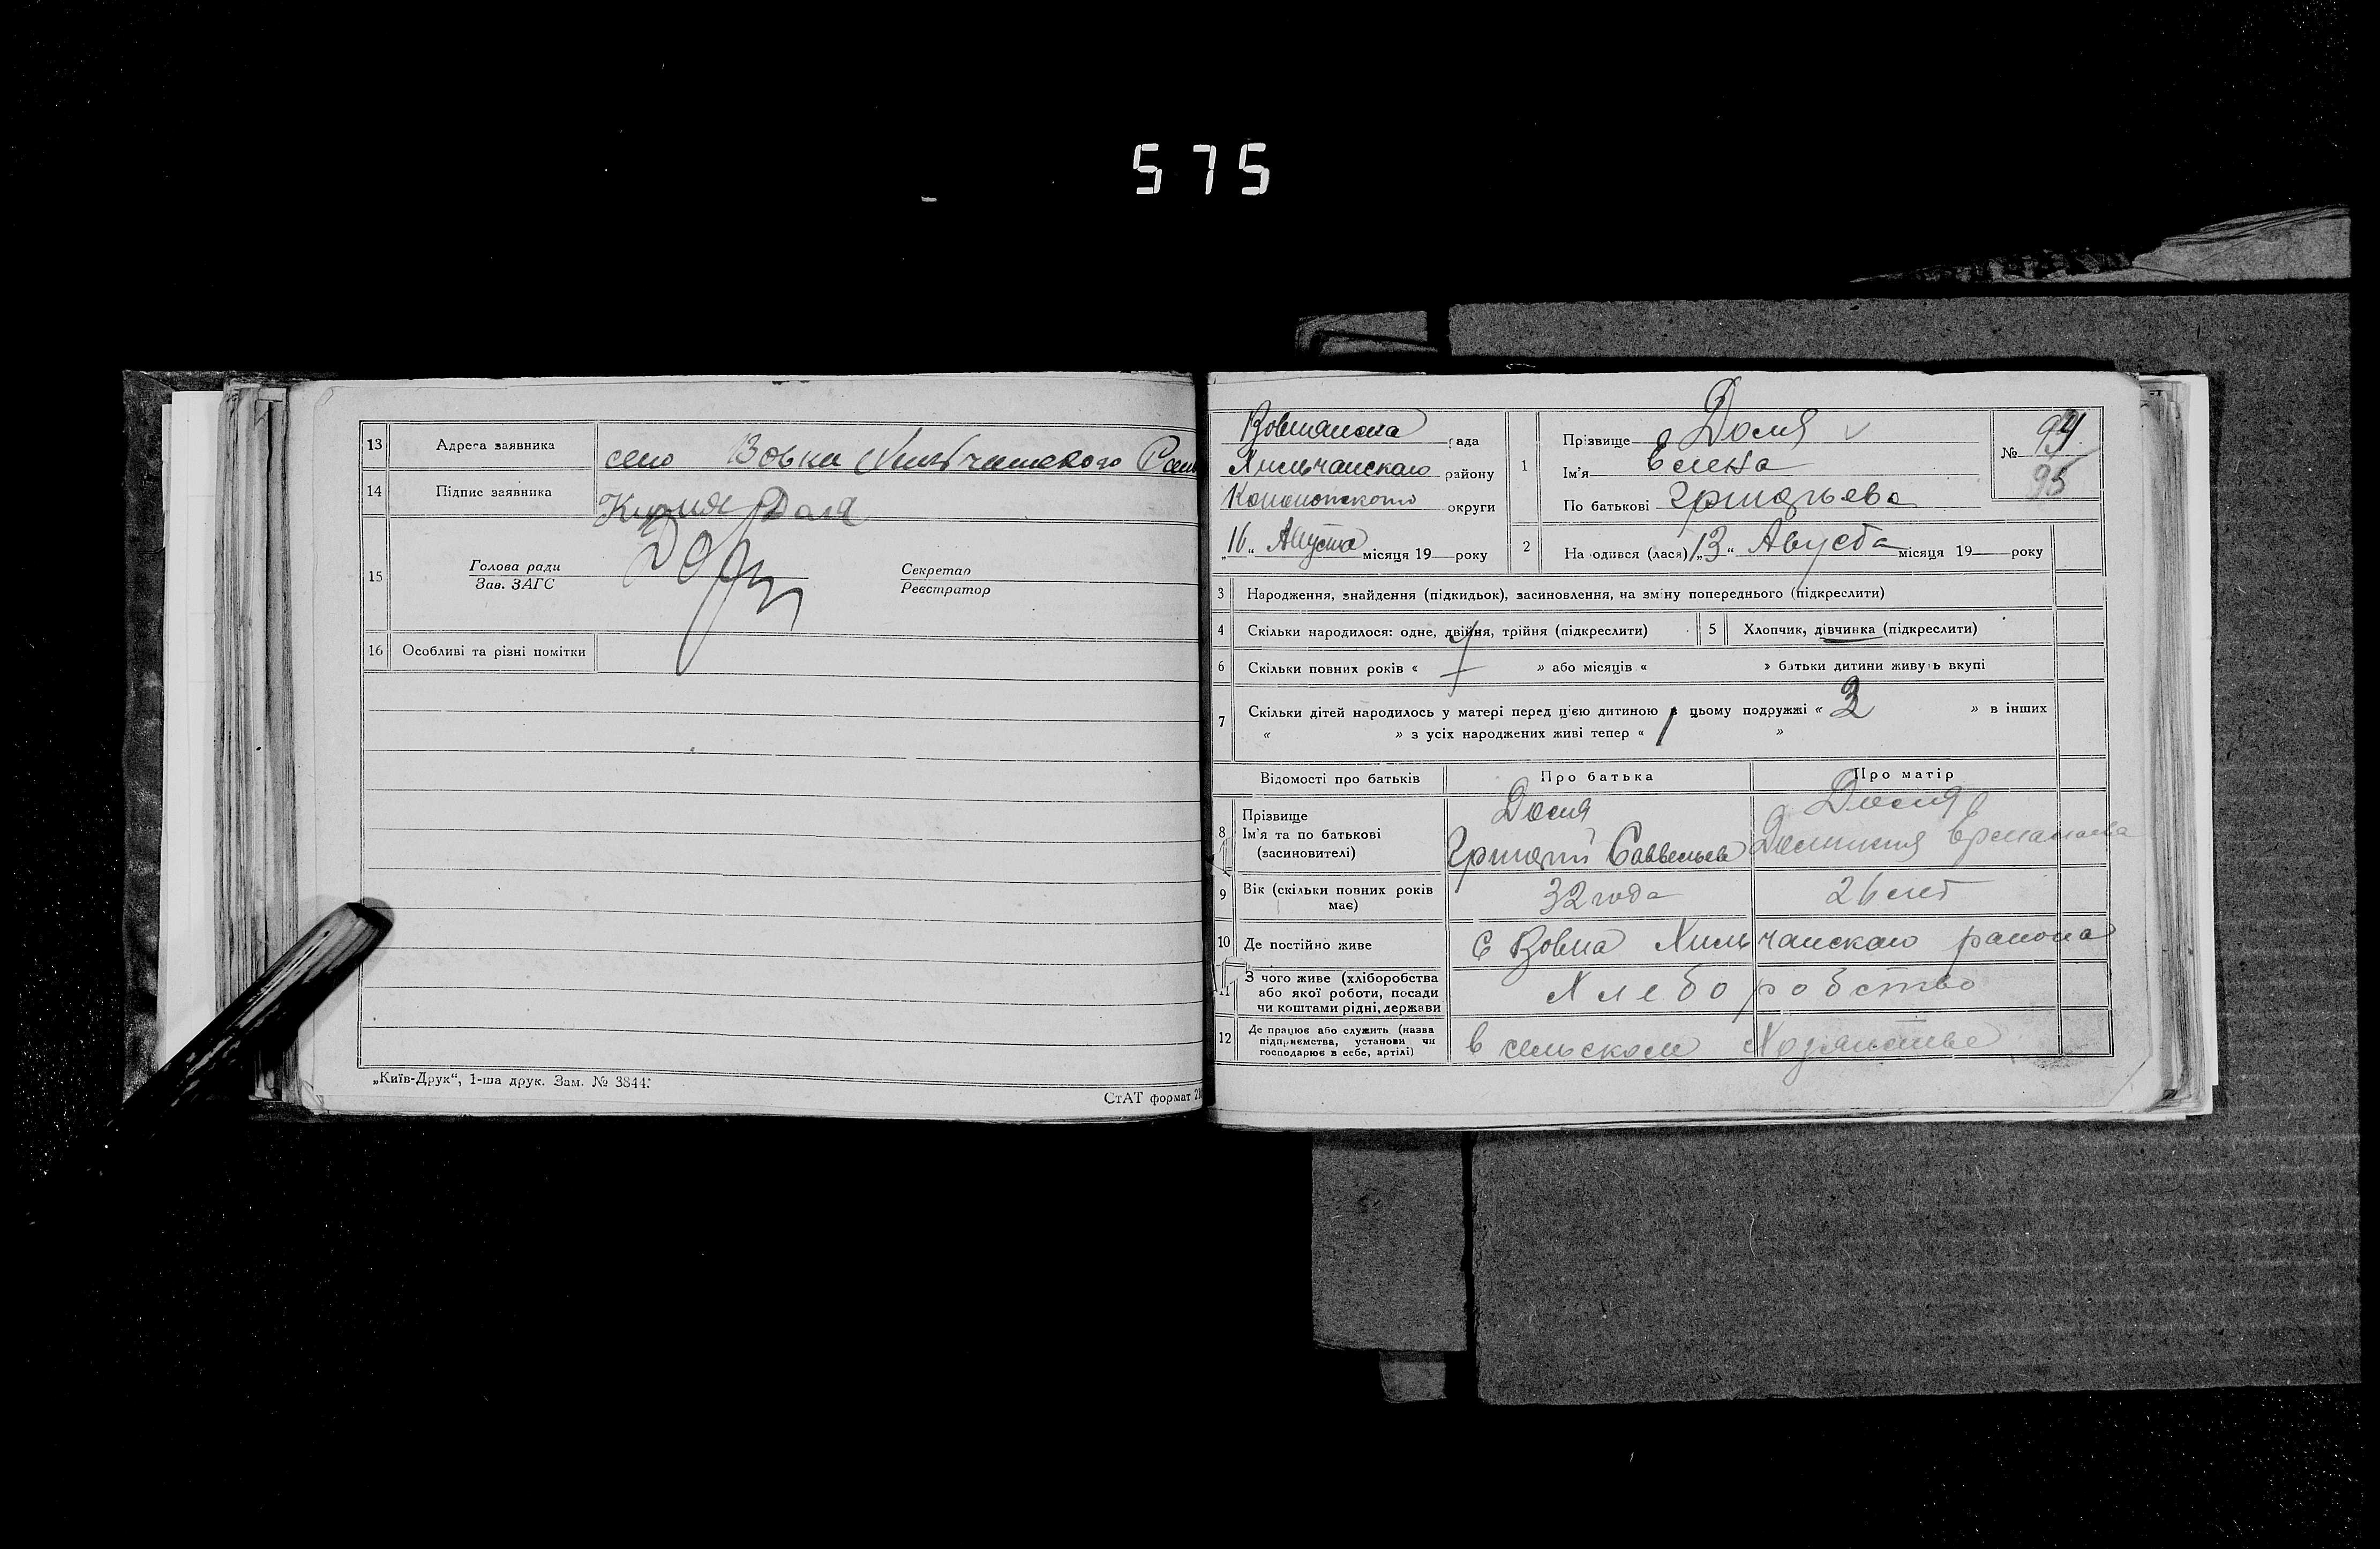 575
13 Адреса заявника село Вовки Хильчанского
14 Підпис заявника Доля
15 Голова ради
Зав. ЗАГС
Секретар
Реєстратор
16 Особливі та різні помітки
„Київ-Друк“, 1-ша друк. Зам. № 3844.
СтАТ формат
рада
Хильчанскаго району
Конотопского округи
„16“ Августа місяця 19 року
1 Прізвище Доля
Ім'я Елена
По батькові Григорьева
№ 94
95
2 На одився (лася) „13“ Августа місяця 19 року
3 Народження, знайдення (підкидьок), засиновлення, на зміну попереднього (підкреслити)
4 Скільки народилося: одне, двійня, трійня (підкреслити)
5 Хлопчик, дівчинка (підкреслити)
6 Скільки повних років « » або місяців « » батьки дитини живуть вкупі
7 Скільки дітей народилось у матері перед цією дитиною в цьому подружжі « 3 » в інших
« » з усіх народжених живі тепер « »
Відомості про батьків Про батька Про матір
8 Прізвище Доля Доля
Ім'я та по батькові Григорий Савельев
(засиновителі)
9 Вік (скільки повних років має) 32 года 26 лет
10 Де постійно живе с Вовна Хильчанскаго района
11 З чого живе (хліборобства
або якої роботи, посади
чи коштами рідні, держави
Хлеборобство
12 Де працює або служить (назва
підприємства, установи чи
господарює в себе, артілі)
в сельском Хозяйстве